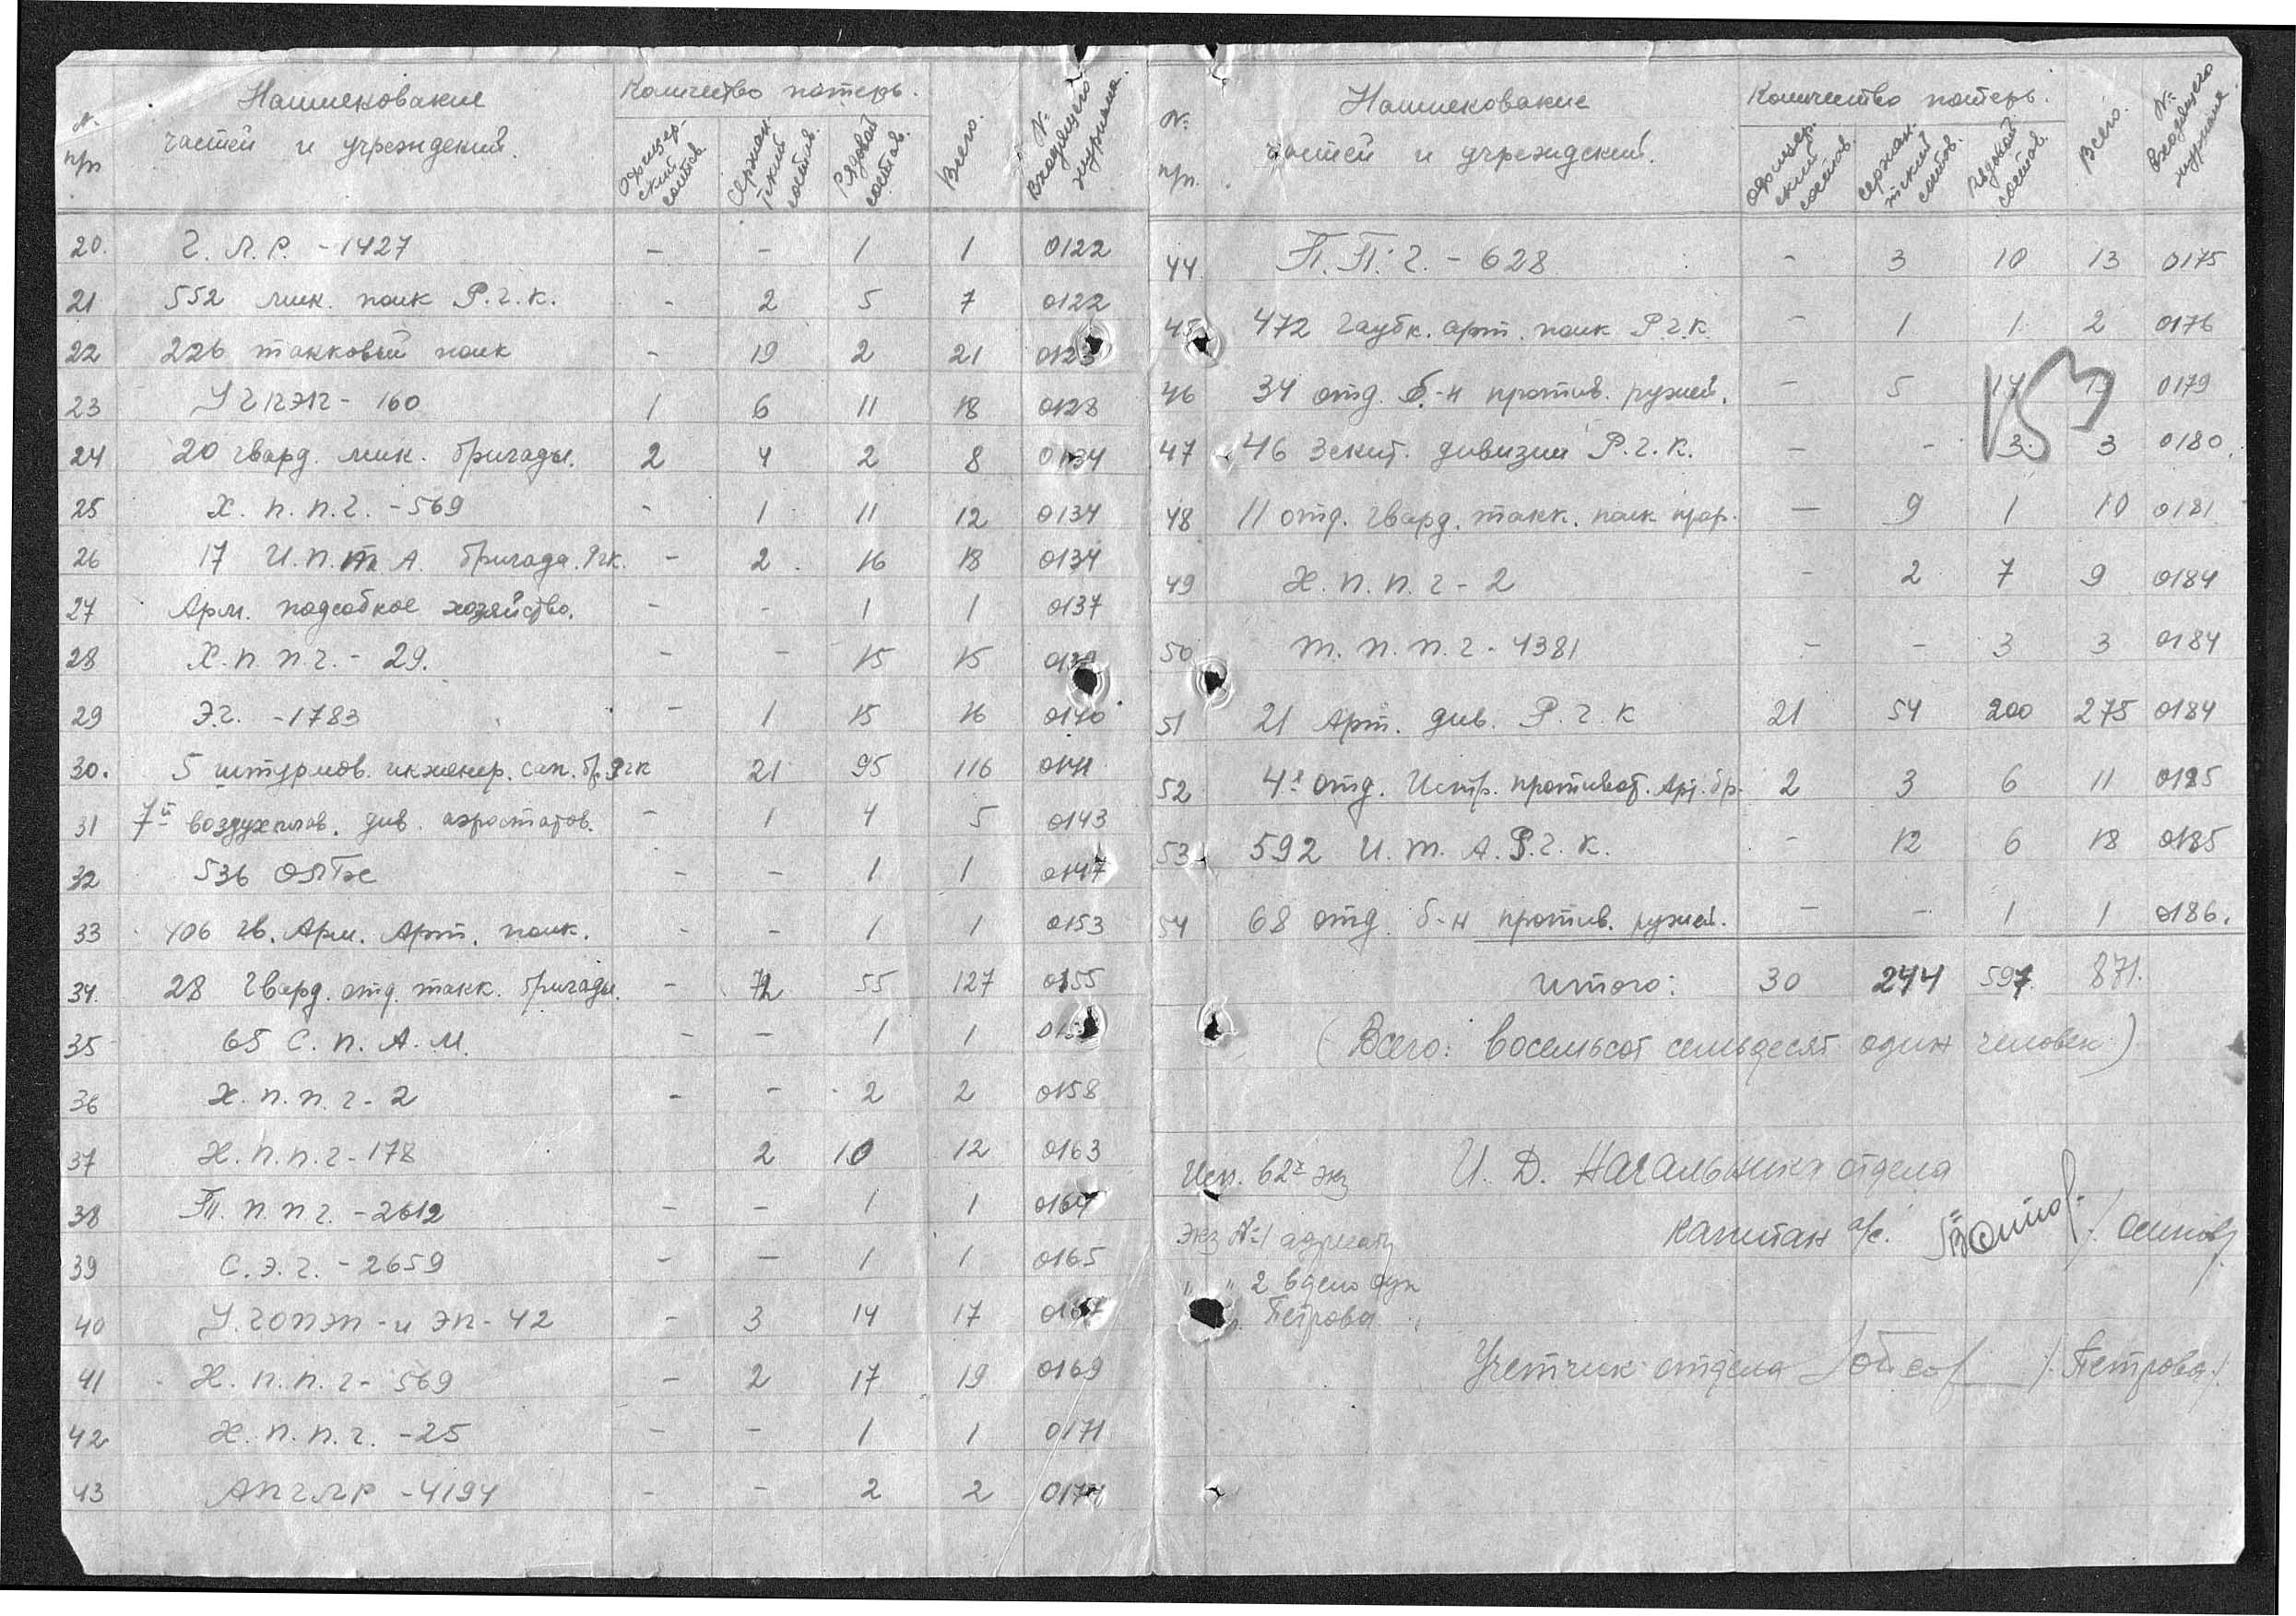 № пп Наименование частей и учреждений. Количество потерь. Офицерский состав. Сержантский состав. Рядовой состав. Всего. № Входящего журнала.
20. Г. Л. Р. - 1427 - - 1 1 0122
21 552 мин. полк Р.г.к. - 2 5 7 0122
22 226 танковый полк - 19 2 21 0123
23 160 1 6 11 18 0128
24 20 гвард. мин. бригады. 2 4 2 8 0134
25 Х. п. п. г. - 569 - 1 11 12 0134
26 17 И.П.Т.А. бригада. Ргк. - 2 16 18 0134
27 Арм. подсобное хозяйство. - - 1 1 0137
28 Х. п. п. г. - 29. - - 15 15
29 Э.г. - 1783 - 1 15 16 0140
30. 5 штурмов. инженер. сап. бр. Ргк 21 95 116 0141
31 7й воздухоплав. див. аэростатов. - 1 4 5 0143
32 536 - - 1 1 0147
33 406 гв. Арм. Арт. полк. - - 1 1 0153
34. 28 Гвард. отд. танк. бригады. - 72 55 127 0155
35 65 С. п. А. М. - - 1 1
36 Х. п. п. г. - 2 - - 2 2 0158
37 Х. п. п. г. - 178 2 10 12 0163
38 Т. п. п. г. - 2612 - - 1 1 0164
39 С. Э. г. - 2659 - - 1 1 0165
40 У.гопэп - и ЭП - 42 - 3 14 17 0167
41 Х. п. п. г. - 569 - 2 17 19 0169
42 Х. п. п. г. - 25 - - 1 1 0171
43 - 4194 - - 2 2
№ пп. Наименование частей и учреждений. Количество потерь. Офицерский состав. Сержантский состав. Рядовой состав. Всего. № входящего журнала.
44 П. П. г. - 628 - 3 10 13 0175
45 472 Гаубк. арт. полк Р.г.к. - 1 1 2 0176
46 34 отд. б-н против. ружей. - 5 0179
47 46 Зенит. дивизии Р.г.к. - - 3 3 0180.
48 11 отд. гвард. танк. полк прор. - 9 1 10 0181
49 Х. п. п. г - 2 - 2 7 9 0184
50 Т. п. п. г - 4381 - - 3 3 0184
51 21 Арт. див. Р. г. к 21 54 200 275 0184
52 4я отд. Истр. противот. Арт. бр. 2 3 6 11 0185
53 592 И. Т. А. Р. г. к. - 12 6 18 0185
54 68 отд. б-н против. ружей. - - 1 1 0186.
Итого: 30 244 597 871.
(Всего: восемьсот семьдесят один человек)
Исп. в 2х экз
И. Д. Начальника отдела
Экз №1 адресату
Капитан а/с. /Осипов/
" " 2 в дело
Петрова
Учетчик отдела /Петрова/